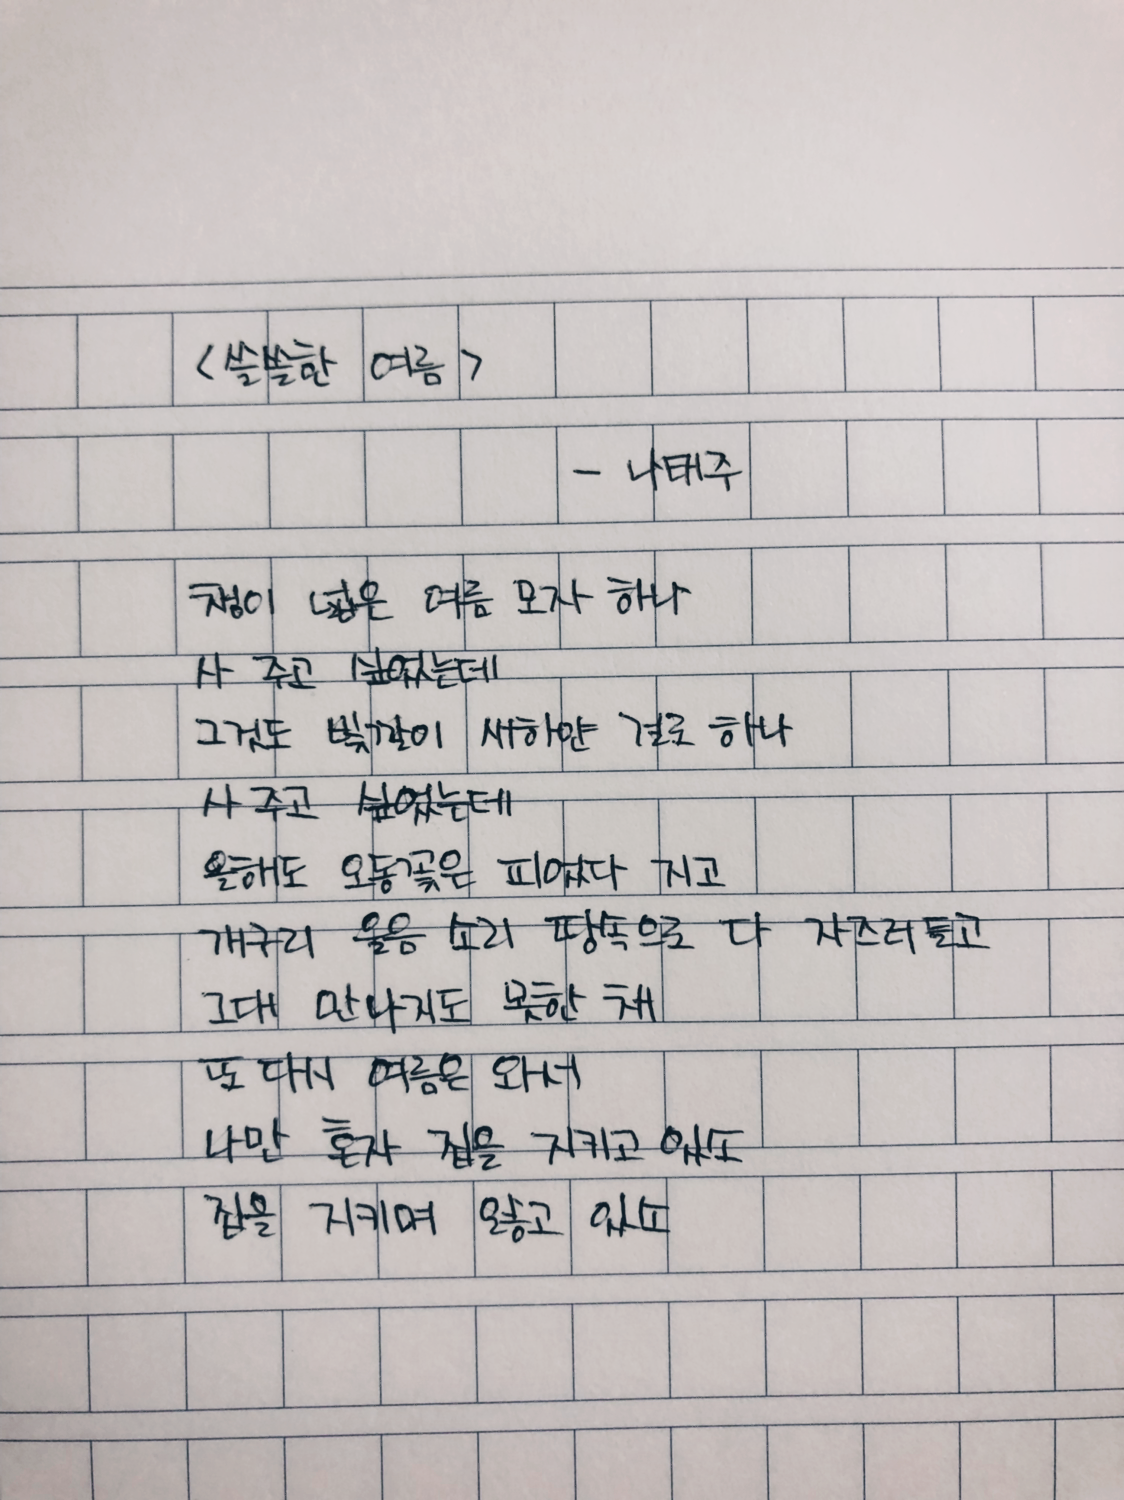 <쓸쓸한 여름>
- 나태주
챙이 넓은 여름 모자 하나
사 주고 싶었는데
그것도 빛깔이 새하얀 걸로 하나
사 주고 싶었는데
올해도 오동꽃은 피었다 지고
개구리 울음 소리 땅속으로 다 자즈러들고
그대 만나지도 못한 채
또 다시 여름은 와서
나만 혼자 집을 지키고 있소
집을 지키며 앓고 있소